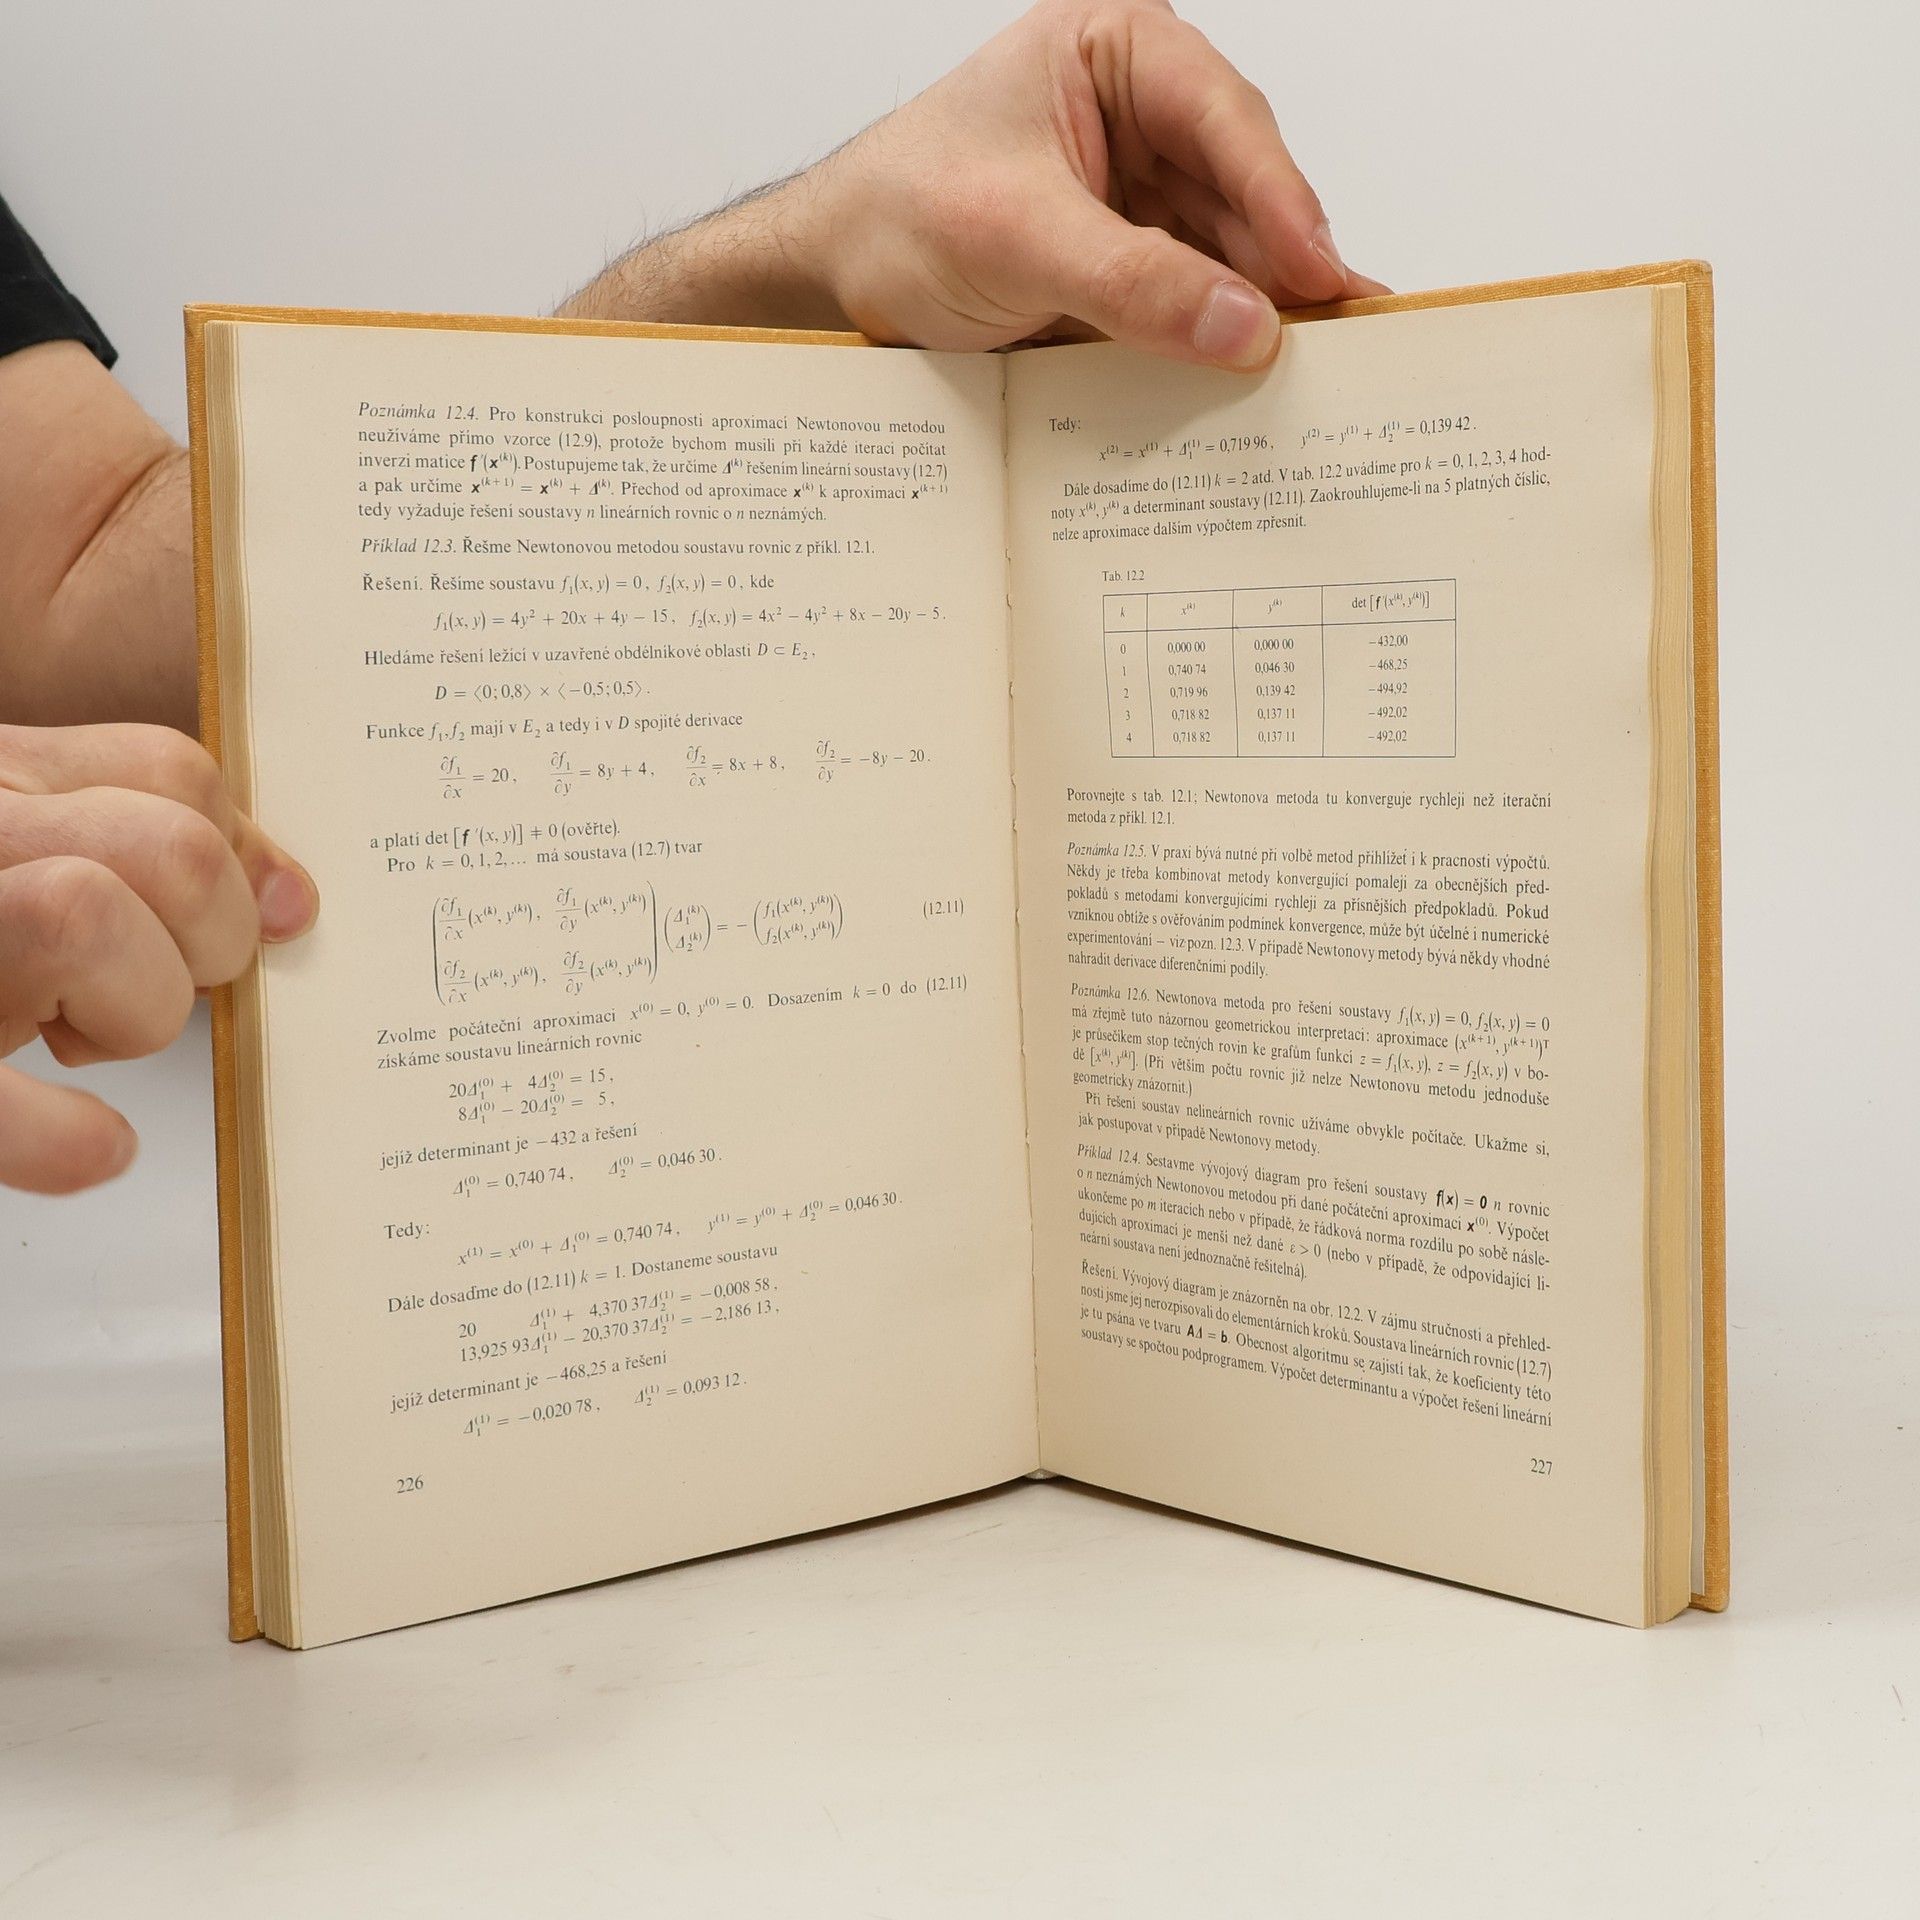 Poznámka 12.4. Pro konstrukci posloupnosti aproximací Newtonovou metodou
neužíváme přímo vzorce (12.9), protože bychom musili při každé iteraci počítat
inverzi matice f ′(x⁽ᵏ⁾). Postupujeme tak, že určíme Δ⁽ᵏ⁾ řešením lineární soustavy (12.7)
a pak určíme x⁽ᵏ⁺¹⁾ = x⁽ᵏ⁾ + Δ⁽ᵏ⁾. Přechod od aproximace x⁽ᵏ⁾ k aproximaci x⁽ᵏ⁺¹⁾
tedy vyžaduje řešení soustavy n lineárních rovnic o n neznámých.
Příklad 12.3. Řešme Newtonovou metodou soustavu rovnic z příkl. 12.1.
Řešení. Řešíme soustavu f₁(x, y) = 0, f₂(x, y) = 0, kde
f₁(x, y) = 4y² + 20x + 4y − 15, f₂(x, y) = 4x² − 4y² + 8x − 20y − 5.
Hledáme řešení ležící v uzavřené obdélníkové oblasti D ⊂ E₂,
D = ⟨0; 0,8⟩ × ⟨−0,5; 0,5⟩.
Funkce f₁, f₂ mají v E₂ a tedy i v D spojité derivace
∂f₁/∂x = 20, ∂f₁/∂y = 8y + 4, ∂f₂/∂x = 8x + 8, ∂f₂/∂y = −8y − 20.
a platí det [f ′(x, y)] ≠ 0 (ověřte).
Pro k = 0, 1, 2, ... má soustava (12.7) tvar
(∂f₁/∂x (x⁽ᵏ⁾, y⁽ᵏ⁾), ∂f₁/∂y (x⁽ᵏ⁾, y⁽ᵏ⁾)
∂f₂/∂x (x⁽ᵏ⁾, y⁽ᵏ⁾), ∂f₂/∂y (x⁽ᵏ⁾, y⁽ᵏ⁾)) (Δ₁⁽ᵏ⁾ Δ₂⁽ᵏ⁾) = − (f₁(x⁽ᵏ⁾, y⁽ᵏ⁾) f₂(x⁽ᵏ⁾, y⁽ᵏ⁾)) (12.11)
Zvolme počáteční aproximaci x⁽⁰⁾ = 0, y⁽⁰⁾ = 0. Dosazením k = 0 do (12.11)
získáme soustavu lineárních rovnic
20Δ₁⁽⁰⁾ + 4Δ₂⁽⁰⁾ = 15,
8Δ₁⁽⁰⁾ − 20Δ₂⁽⁰⁾ = 5,
jejíž determinant je −432 a řešení
Δ₁⁽⁰⁾ = 0,740 74, Δ₂⁽⁰⁾ = 0,046 30.
Tedy:
x⁽¹⁾ = x⁽⁰⁾ + Δ₁⁽⁰⁾ = 0,740 74, y⁽¹⁾ = y⁽⁰⁾ + Δ₂⁽⁰⁾ = 0,046 30.
Dále dosaďme do (12.11) k = 1. Dostaneme soustavu
20 Δ₁⁽¹⁾ + 4,370 37Δ₂⁽¹⁾ = −0,008 58,
13,925 93Δ₁⁽¹⁾ − 20,370 37Δ₂⁽¹⁾ = −2,186 13,
jejíž determinant je −468,25 a řešení
Δ₁⁽¹⁾ = −0,020 78, Δ₂⁽¹⁾ = 0,093 12.
226
Tedy:
x⁽²⁾ = x⁽¹⁾ + Δ₁⁽¹⁾ = 0,719 96, y⁽²⁾ = y⁽¹⁾ + Δ₂⁽¹⁾ = 0,139 42.
Dále dosadíme do (12.11) k = 2 atd. V tab. 12.2 uvádíme pro k = 0, 1, 2, 3, 4 hod-
noty x⁽ᵏ⁾, y⁽ᵏ⁾ a determinant soustavy (12.11). Zaokrouhlujeme-li na 5 platných číslic,
nelze aproximace dalším výpočtem zpřesnit.
Tab. 12.2
k x⁽ᵏ⁾ y⁽ᵏ⁾ det [f ′(x⁽ᵏ⁾, y⁽ᵏ⁾)]
0 0,000 00 0,000 00 −432,00
1 0,740 74 0,046 30 −468,25
2 0,719 96 0,139 42 −494,92
3 0,718 82 0,137 11 −492,02
4 0,718 82 0,137 11 −492,02
Porovnejte s tab. 12.1; Newtonova metoda tu konverguje rychleji než iterační
metoda z příkl. 12.1.
Poznámka 12.5. V praxi bývá nutné při volbě metod přihlížet i k pracnosti výpočtů.
Někdy je třeba kombinovat metody konvergující pomaleji za obecnějších před-
pokladů s metodami konvergujícími rychleji za přísnějších předpokladů. Pokud
vzniknou obtíže s ověřováním podmínek konvergence, může být účelné i numerické
experimentování – viz pozn. 12.3. V případě Newtonovy metody bývá někdy vhodné
nahradit derivace diferenčními podíly.
Poznámka 12.6. Newtonova metoda pro řešení soustavy f₁(x, y) = 0, f₂(x, y) = 0
má zřejmě tuto názornou geometrickou interpretaci: aproximace (x⁽ᵏ⁺¹⁾, y⁽ᵏ⁺¹⁾)ᵀ
je průsečíkem stop tečných rovin ke grafům funkcí z = f₁(x, y), z = f₂(x, y) v bo-
dě [x⁽ᵏ⁾, y⁽ᵏ⁾]. (Při větším počtu rovnic již nelze Newtonovu metodu jednoduše
geometricky znázornit.)
Při řešení soustav nelineárních rovnic užíváme obvykle počítače. Ukažme si,
jak postupovat v případě Newtonovy metody.
Příklad 12.4. Sestavme vývojový diagram pro řešení soustavy f(x) = 0 n rovnic
o n neznámých Newtonovou metodou při dané počáteční aproximaci x⁽⁰⁾. Výpočet
ukončeme po m iteracích nebo v případě, že řádková norma rozdílu po sobě násle-
dujících aproximací je menší než dané ε > 0 (nebo v případě, že odpovídající li-
neární soustava není jednoznačně řešitelná).
Řešení. Vývojový diagram je znázorněn na obr. 12.2. V zájmu stručnosti a přehled-
nosti jsme jej nerozpisovali do elementárních kroků. Soustava lineárních rovnic (12.7)
je tu psána ve tvaru AΔ = b. Obecnost algoritmu se zajistí tak, že koeficienty této
soustavy se spočtou podprogramem. Výpočet determinantu a výpočet řešení lineární
227